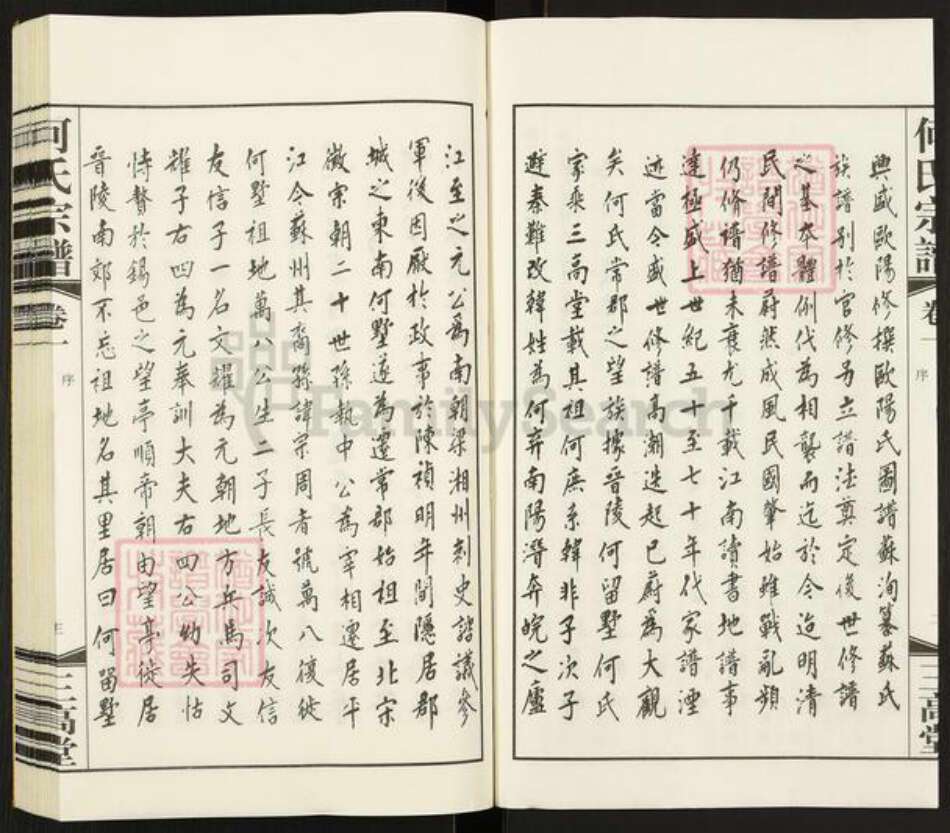 興盛歐陽修撰歐陽氏圖譜蘇洵纂蘇氏
族譜別於官修另立譜法奠定後世修譜
之基本體例代為相襲而迄於今迨明清
民間修譜蔚然成風民國肇始雖戰亂頻
仍修譜猶未衰尤千載江南讀書地譜事
達極盛上世紀五十至七十年代家譜湮
迹當今盛世修譜高潮迭起已蔚為大觀
矣何氏常郡之望族據晉陵何留墅何氏
家乘三高堂載其祖何庶系韓非子次子
避秦難改韓姓為何弃南陽潛奔皖之廬
江至之元公為南朝梁湘州刺史諮議參
軍後因厭於政事於陳禎明年間隱居郡
城之東南何墅遂為遷常郡始祖至北宋
徽宗朝二十世孫執中公為宰相遷居平
江今蘇州其裔孫諱宗周者號萬八復徙
何墅祖地萬八公生二子長友誠次友信
友信子一名文耀為元朝地方兵馬司文
耀子右四為元奉訓大夫右四公幼失怙
恃贅於錫邑之望亭順帝朝由望亭徙居
晉陵南郊不忘祖地名其里居曰何留墅
何氏宗譜
卷一
序
三
三高堂
FamilySearch